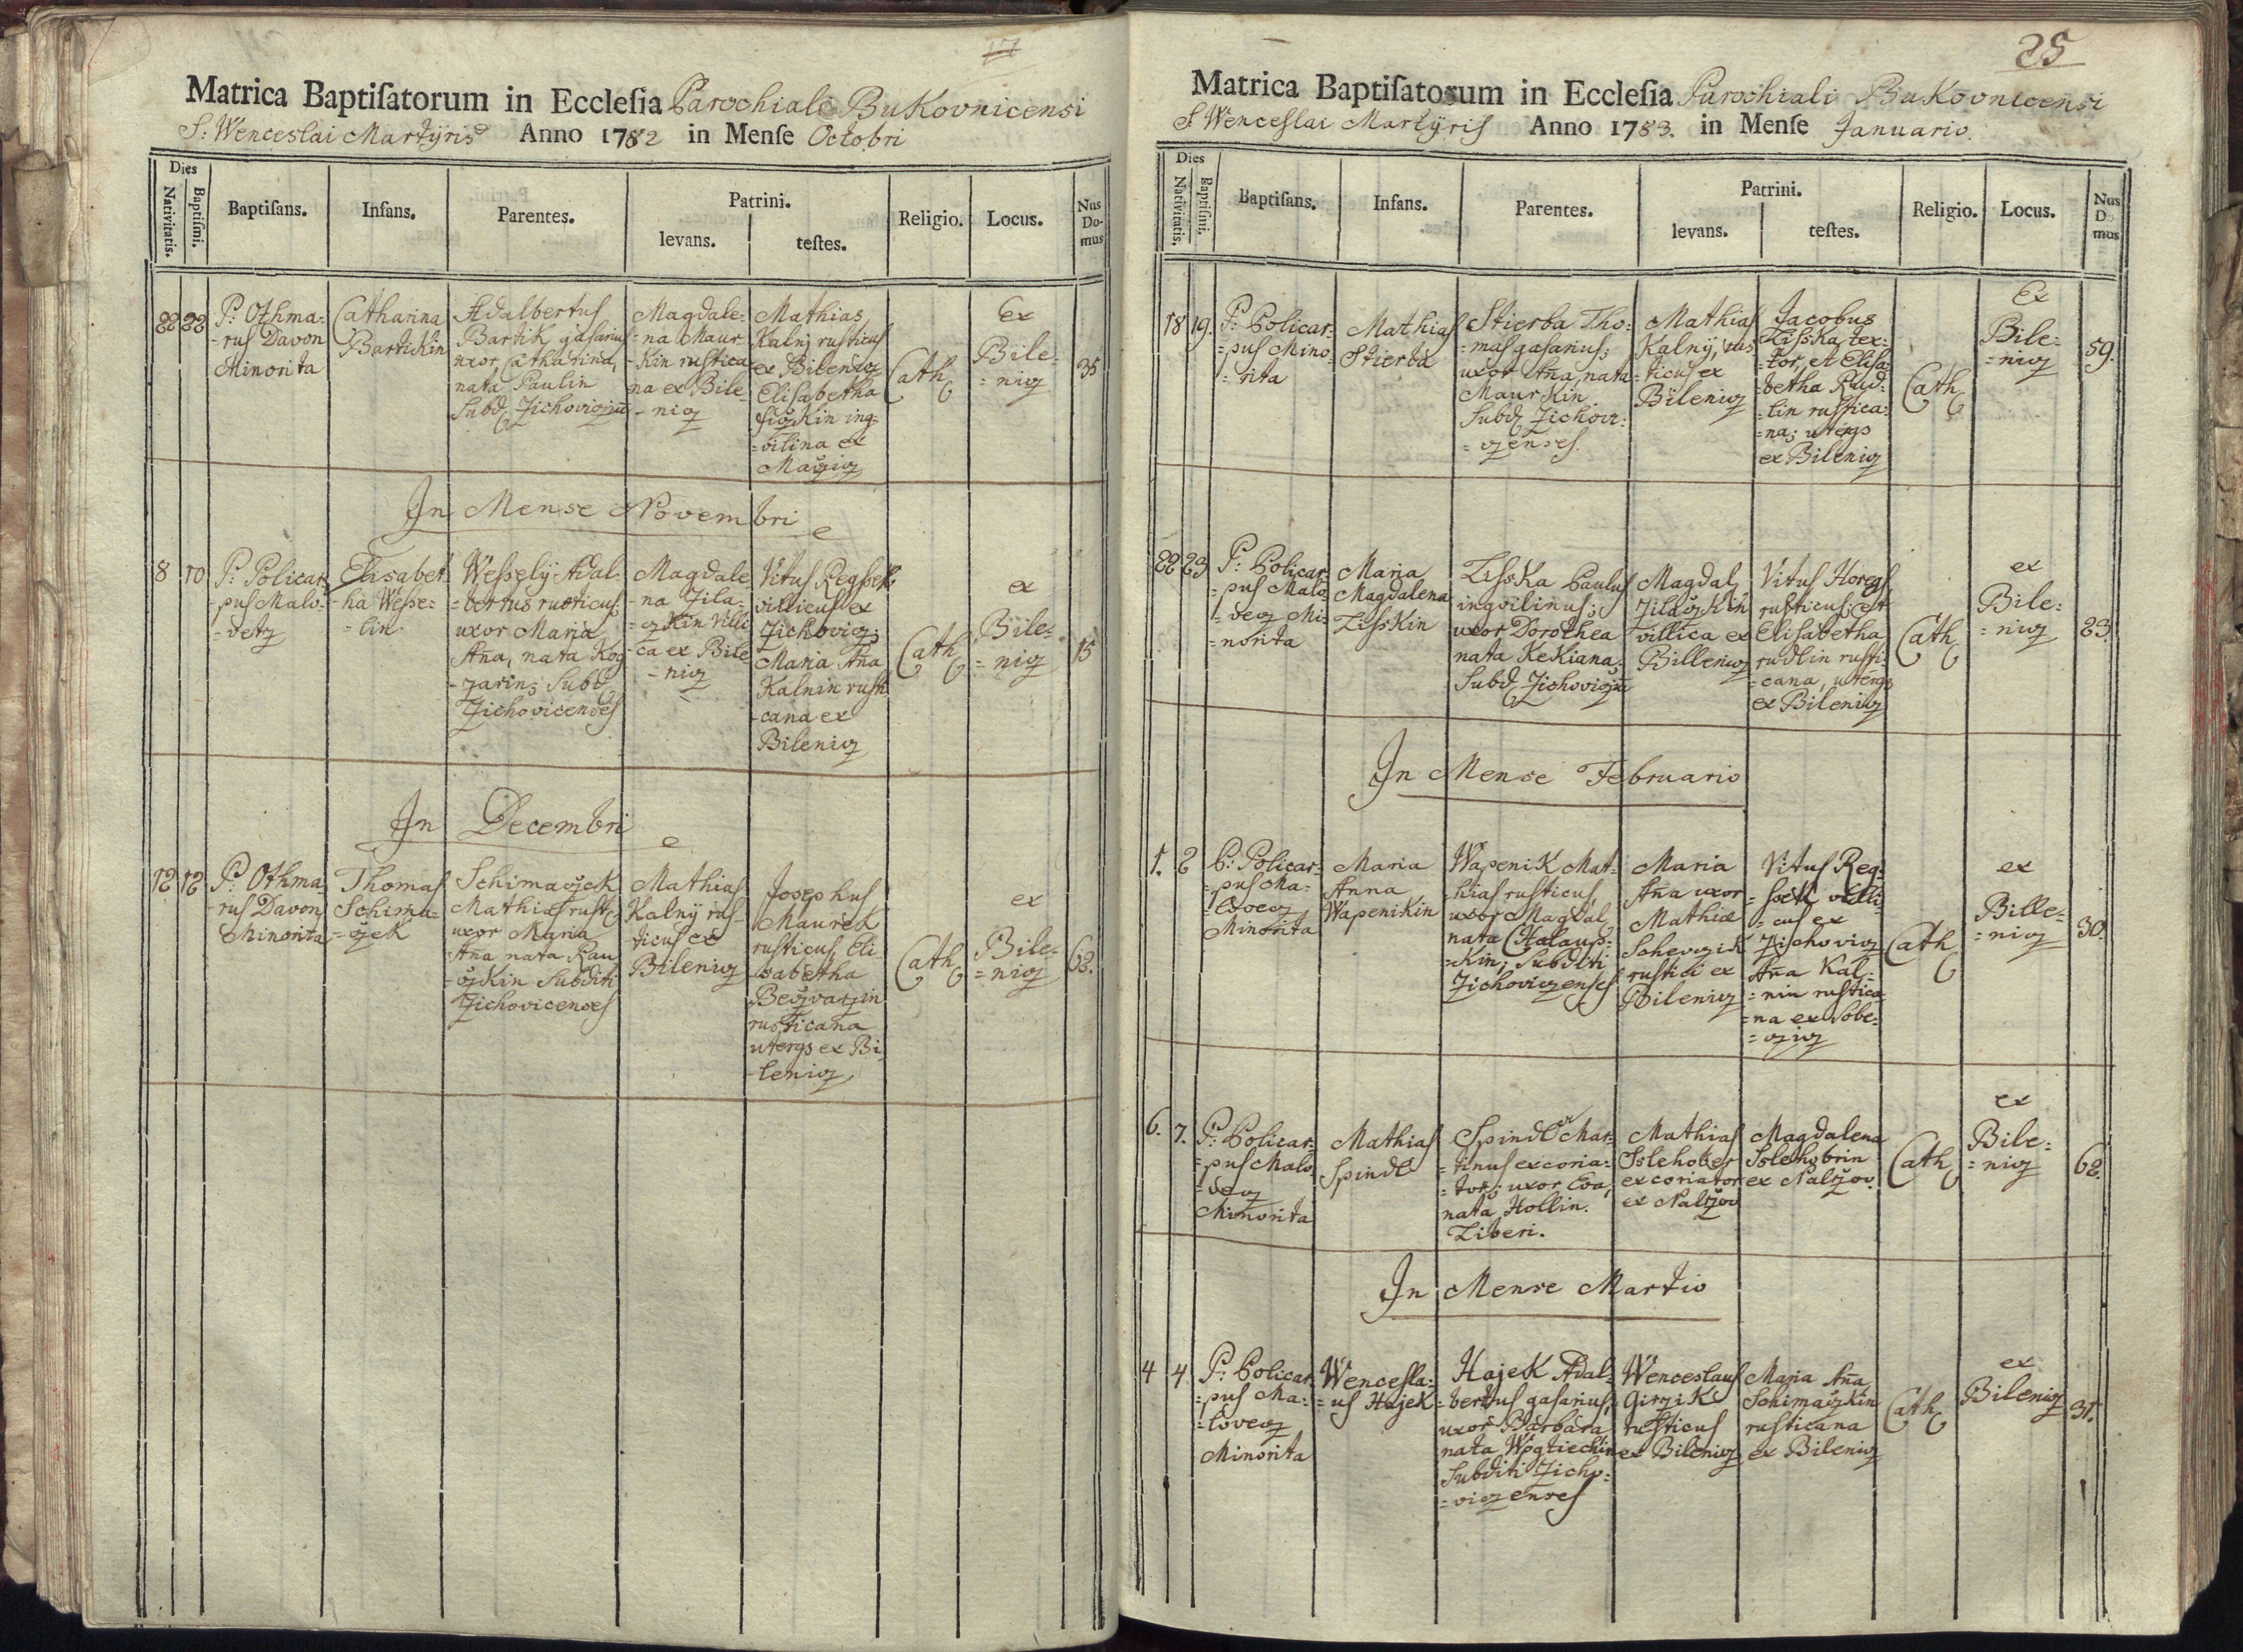 17
Matrica Baptiſatorum in Eccleſia Parochiali Bukovnicensi
S: Wenceslai Martÿris Anno 1782 in Menſe Octobri
Dies
Nativitatis.
Baptiſmi.
Baptiſans.
Infans.
Parentes.
Patrini.
levans.
teſtes.
Religio.
Locus.
Nus
Do-
mus
22
22
P: Othma=
-rus Davon
Minorita
Catharina
Bartikin
Adalbertus
Bartik gasarius
uxor Catharina,
nata Paulin
Magdale=
=na Maur
-kin rustica
na ex Bile
-nicz
Mathias
Kalnj rusticus
ex Bilenicz
Elisabetha
ing=
=vilina ex
Cath
Ex
Bile=
=nicz
35
In Mense Novembri
8
10
P: Policar=
-pus Malo=
=vetz
Elisabet
-ha Weſse=
=lin.
Weſselÿ Adal=
=bertus rusticus;
uxor Maria
Aña, nata Kog
-zarin; Subd
Zichovicenses
Magdale
-na Zila=
=czkin villi
-ca ex Bile
-nicz
Vitus Regſsek
villicus ex
Zichovicz;
Maria Aña
Kalnin rusti
-cana ex
Bilenicz
Cath
ex
Bile=
=nicz
15
In Decembri
12
12
P: Othma
-rus Davon
Minorita
Thomas
Schima=
=czek
Schimaczek
Mathias rust
uxor Maria
Aña nata Rau
-czkin Subditi
Zichovicenses
Mathias
Kalnÿ rus
-ticus ex
Bilenicz
Josephus
Maurek
rusticus, Eli
-sabetha
Beczvarzin
rusticana
uterqs ex Bi
-lenicz
Cath
ex
Bile=
=nicz
62.
25
Matrica Baptiſatorum in Eccleſia Parochiali Bukovnicensi
S: Wenceslai Martÿris Anno 1783. in Menſe Januario.
Dies
Nativitatis.
Baptiſmi.
Baptiſans.
Infans.
Parentes.
Patrini.
levans.
teſtes.
Religio.
Locus.
Nus
Do
mus
18
19.
P: Policar=
=pus Mino=
=rita
Mathias
Stierba
Stierba Tho=
=mas gasarius;
uxor Aña, nata
Maurkin
Subd Zichovi=
=czenses.
Mathias
Kalnÿ, rus
-ticus ex
Bilenicz
Jacobus
Ziſska, tex=
=tor, et Elisa=
-betha Rud=
=lin rustica=
=na; uterqs
ex Bilenicz
Cath
Ex
Bile=
=nicz
59.
22
23
P: Policar=
-pus Malo
-vecz Mi=
=norita
Maria
Magdalena
Ziſskin
Ziſska Paulus
inqvilinus;
uxor Dorothea
nata Kekiana;
Magdal
Zilaczkin
villica ex
Billenicz
Vitus Horegs
rusticus; et
Elisabetha
rudlin rusti=
=cana, uterqs
ex Bilenicz
Cath
ex
Bile=
=nicz
23.
In Mense Februario
1.
2
P: Policar=
=pus Ma=
-lovecz
Minorita
Maria
Anna
Wapenikin
Wapenik Mat=
-hias rusticus,
uxor Magdal
nata Halaup=
=kin; Subditi
Zichoviczenses
Maria
Aña uxor
Mathiæ
Schevczik
rustici ex
Bilenicz
Vitus Reg=
=ſsek villi=
=cus ex
Zichovicz
Aña Kal=
=nin rustica
=na ex Sobe=
=czicz
Cath
ex
Bille=
=nicz
30.
6.
7.
P: Policar=
=pus Malo
=vecz
Minorita
Mathias
Spindl
Spindler Mar=
=tinus excoria=
=tor; uxor Eva,
nata Hollin.
Liberi.
Mathias
Sslehober
excoriator
ex Nalzov
Magdalena
Sslehobrin
ex Nalzov.
Cath
ex
Bile=
=nicz
62.
In Mense Martio
4
4
P: Policar
=pus Ma=
=lovecz
Minorita
Wencesla=
=us Hajek
Hajek Adal=
=bertus gasarius,
uxor Barbara
nata Wogtiechin
Subditi Zicho=
=viczenses
Wenceslaus
Girzik
rusticus
ex Bilenicz
Maria Aña
Schimaczkin
rusticana
ex Bilenicz
Cath
ex
Bilenicz
31.